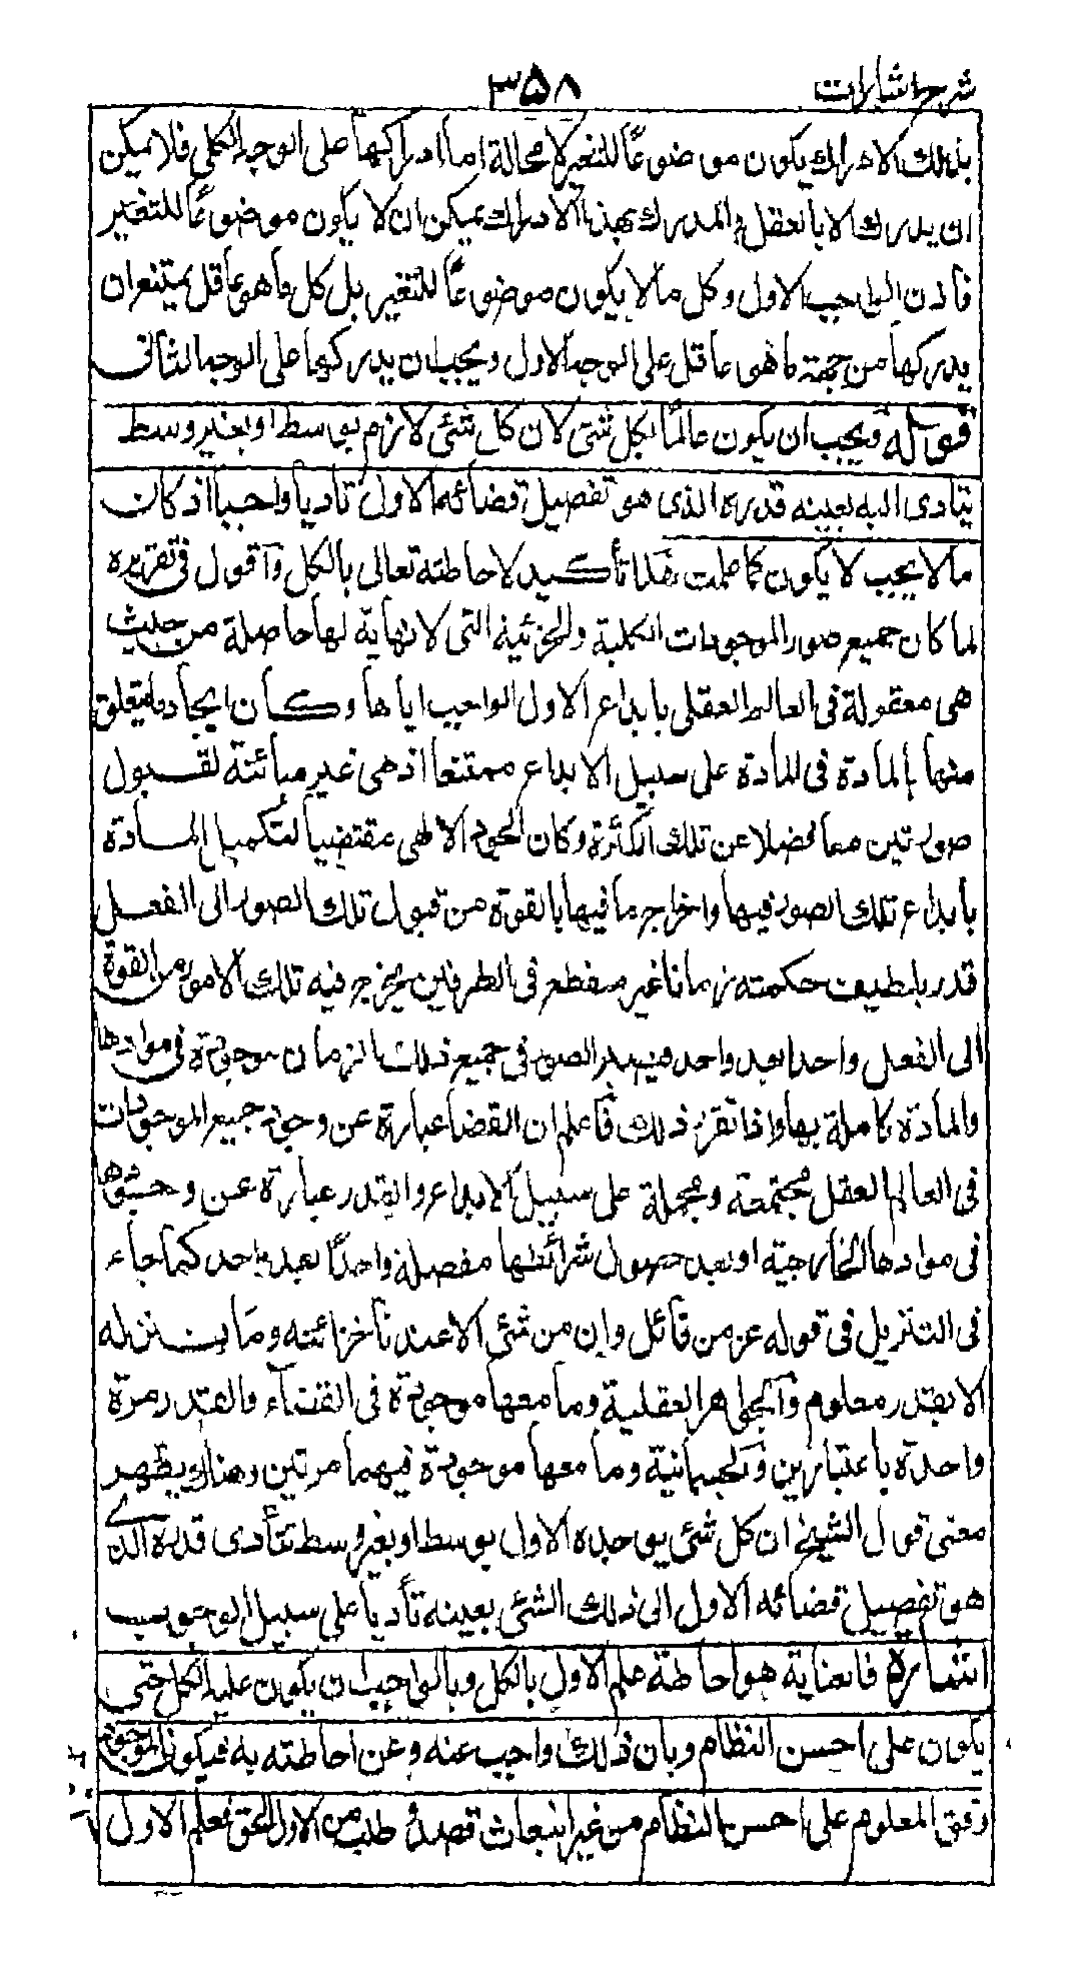 شرح اشارات
۳۵۸
بذلك الادراك يكون موضوعًا للتغير لا محالة اما ادراكها على الوجه الكلي فلا يمكن
ان يدرك الا بالعقل والمدرك بهذا الادراك يمكن ان لا يكون موضوعًا للتغير
فاذن الواجب الاول وكل ما لا يكون موضوعًا للتغير بل كل ما هو عاقل يمتنع ان
يدركها من جهة ما هو عاقل على الوجه الاول ويجب ان يدركها على الوجه الثانى
قوله ويجب ان يكون عالمًا بكل شئ لان كل شئ لازم بوسط او بغير وسط
يتادى اليه بعينه قدره الذى هو تفصيل قضائه الاول تاديا واجبا اذ كان
ما لا يجب لا يكون كما علمت هذا تأكيد لاحاطته تعالى بالكل وآقول فى تقريره
لما كان جميع صور الموجودات الكلية والجزئية التى لا نهاية لها حاصلة من حيث
هى معقولة فى العالم العقلى بابداع الاول الواجب اياها وكان ايجاد ما يتعلق
منها بالمادة فى المادة على سبيل الابداع ممتنعا اذ هى غير متأتية لقبول
صورتين معا فضلا عن تلك الكثرة وكان الجود الالهى مقتضيا لتكميل المادة
بابداع تلك الصور فيها واخراج ما فيها بالقوة من قبول تلك الصور الى الفعل
قدر بلطيف حكمته زمانا غير منقطع فى الطرفين يخرج فيه تلك الامور من القوة
الى الفعل واحدا بعد واحد فيصير الصور فى جميع ذلك الزمان موجودة فى موادها
والمادة كاملة بها واذا تقرر ذلك فاعلم ان القضا عبارة عن وجود جميع الموجودات
فى العالم العقل مجتمعة ومجملة على سبيل الابداع والقدر عبارة عن وجودها
فى موادها الخارجية او بعد حصول شرائطها مفصلة واحدًا بعد واحد كما جاء
فى التنزيل فى قوله عز من قائل وان من شئ الا عندنا خزائنه وما ننزله
الا بقدر معلوم والجواهر العقلية وما معها موجودة فى القضاء والقدر مرة
واحدة باعتبارين والجسمانية وما معها موجودة فيهما مرتين وهناك يظهر
معنى قول الشيخ ان كل شئ يوجده الاول بوسط او بغير وسط تتأدى قدره الذے
هو تفصيل قضائه الاول الى ذلك الشئ بعينه تأديا على سبيل الوجوب
اشارة فالعناية هو احاطة علم الاول بالكل وبالواجب ان يكون عليه الكل حتى
يكون على احسن النظام وبان ذلك واجب عنه وعن احاطته به فيكون الموجود
وفق المعلوم على احسن النظام من غير انبعاث قصد و طلب من الاول الحق فعلم الاول